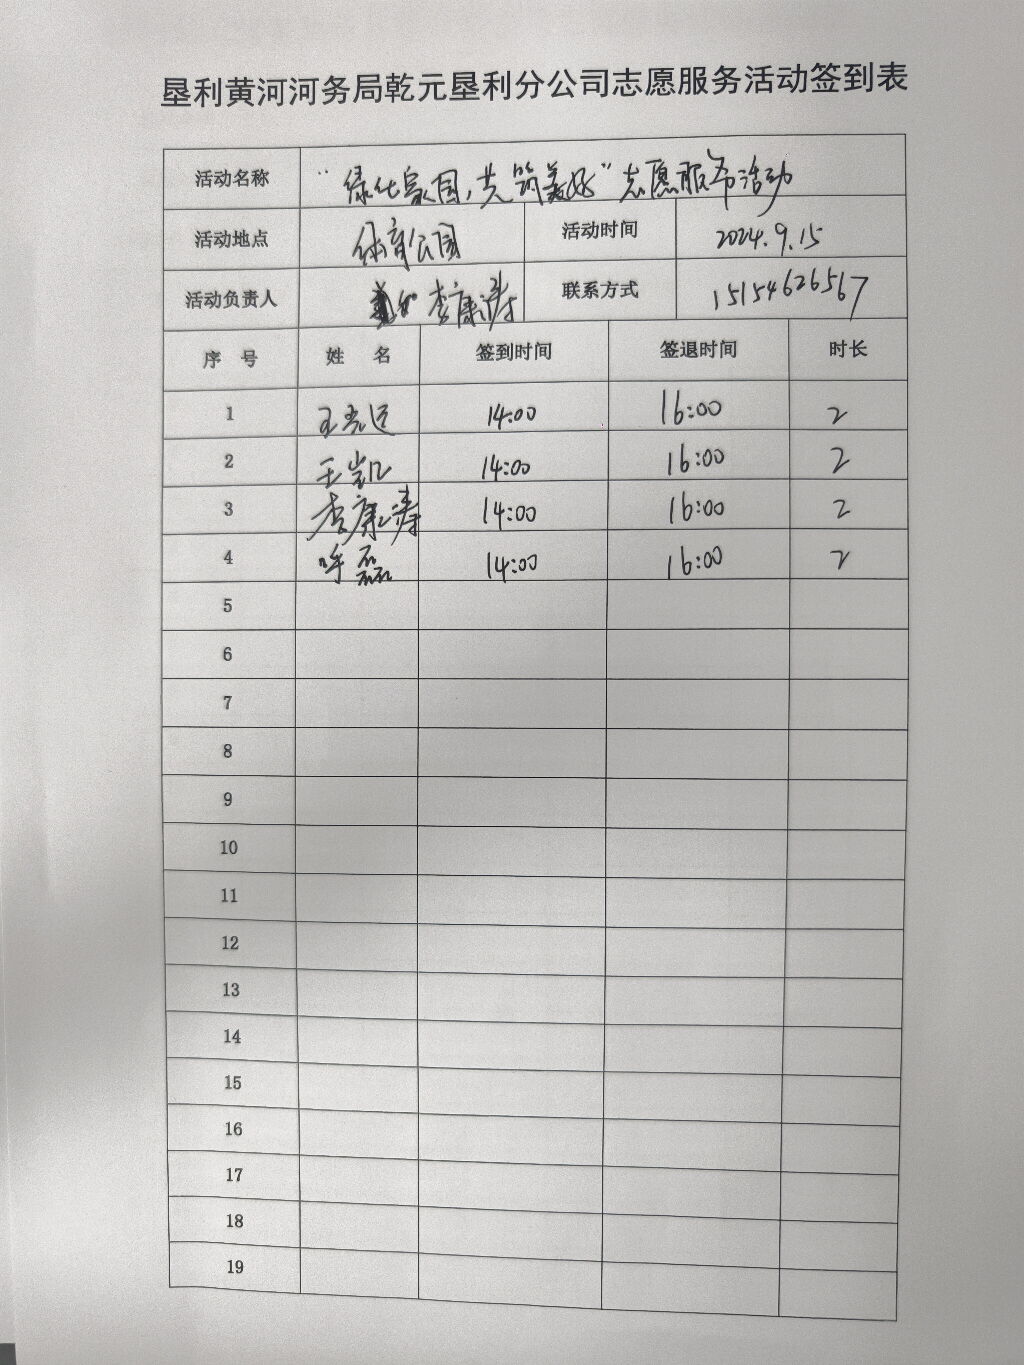 垦利黄河河务局乾元垦利分公司志愿服务活动签到表
活动名称 “绿化家园,共筑美好”志愿服务活动
活动地点 体育公园 活动时间 2024.9.15
活动负责人 李康涛 联系方式 15154626567
序 号 姓 名 签到时间 签退时间 时长
1 王 14:00 16:00 2
2 王凯 14:00 16:00 2
3 李康涛 14:00 16:00 2
4 呼磊 14:00 16:00 2
5
6
7
8
9
10
11
12
13
14
15
16
17
18
19